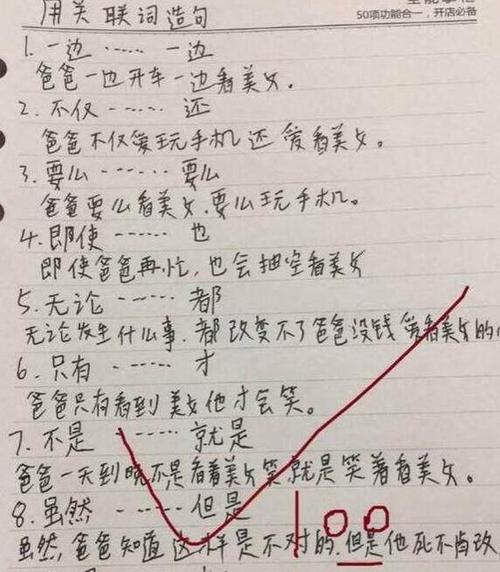 用关联词造句
50项功能合一，开店必备
1.一边 …… 一边
爸爸一边开车一边看美女。
2.不仅 …… 还
爸爸不仅爱玩手机还爱看美女。
3.要么 …… 要么
爸爸要么看美女.要么玩手机。
4.即使 …… 也
即使爸爸再忙，也会抽空看美女
5.无论 …… 都
无论发生什么事.都改变不了爸爸没钱爱看美女的
6.只有 …… 才
爸爸只有看到美女他才会笑。
7.不是 …… 就是
爸爸一天到晚不是看着美女笑就是笑着看美女。
8.虽然 …… 但是
虽然,爸爸知道这样是不对的.但是他死不肯改
100